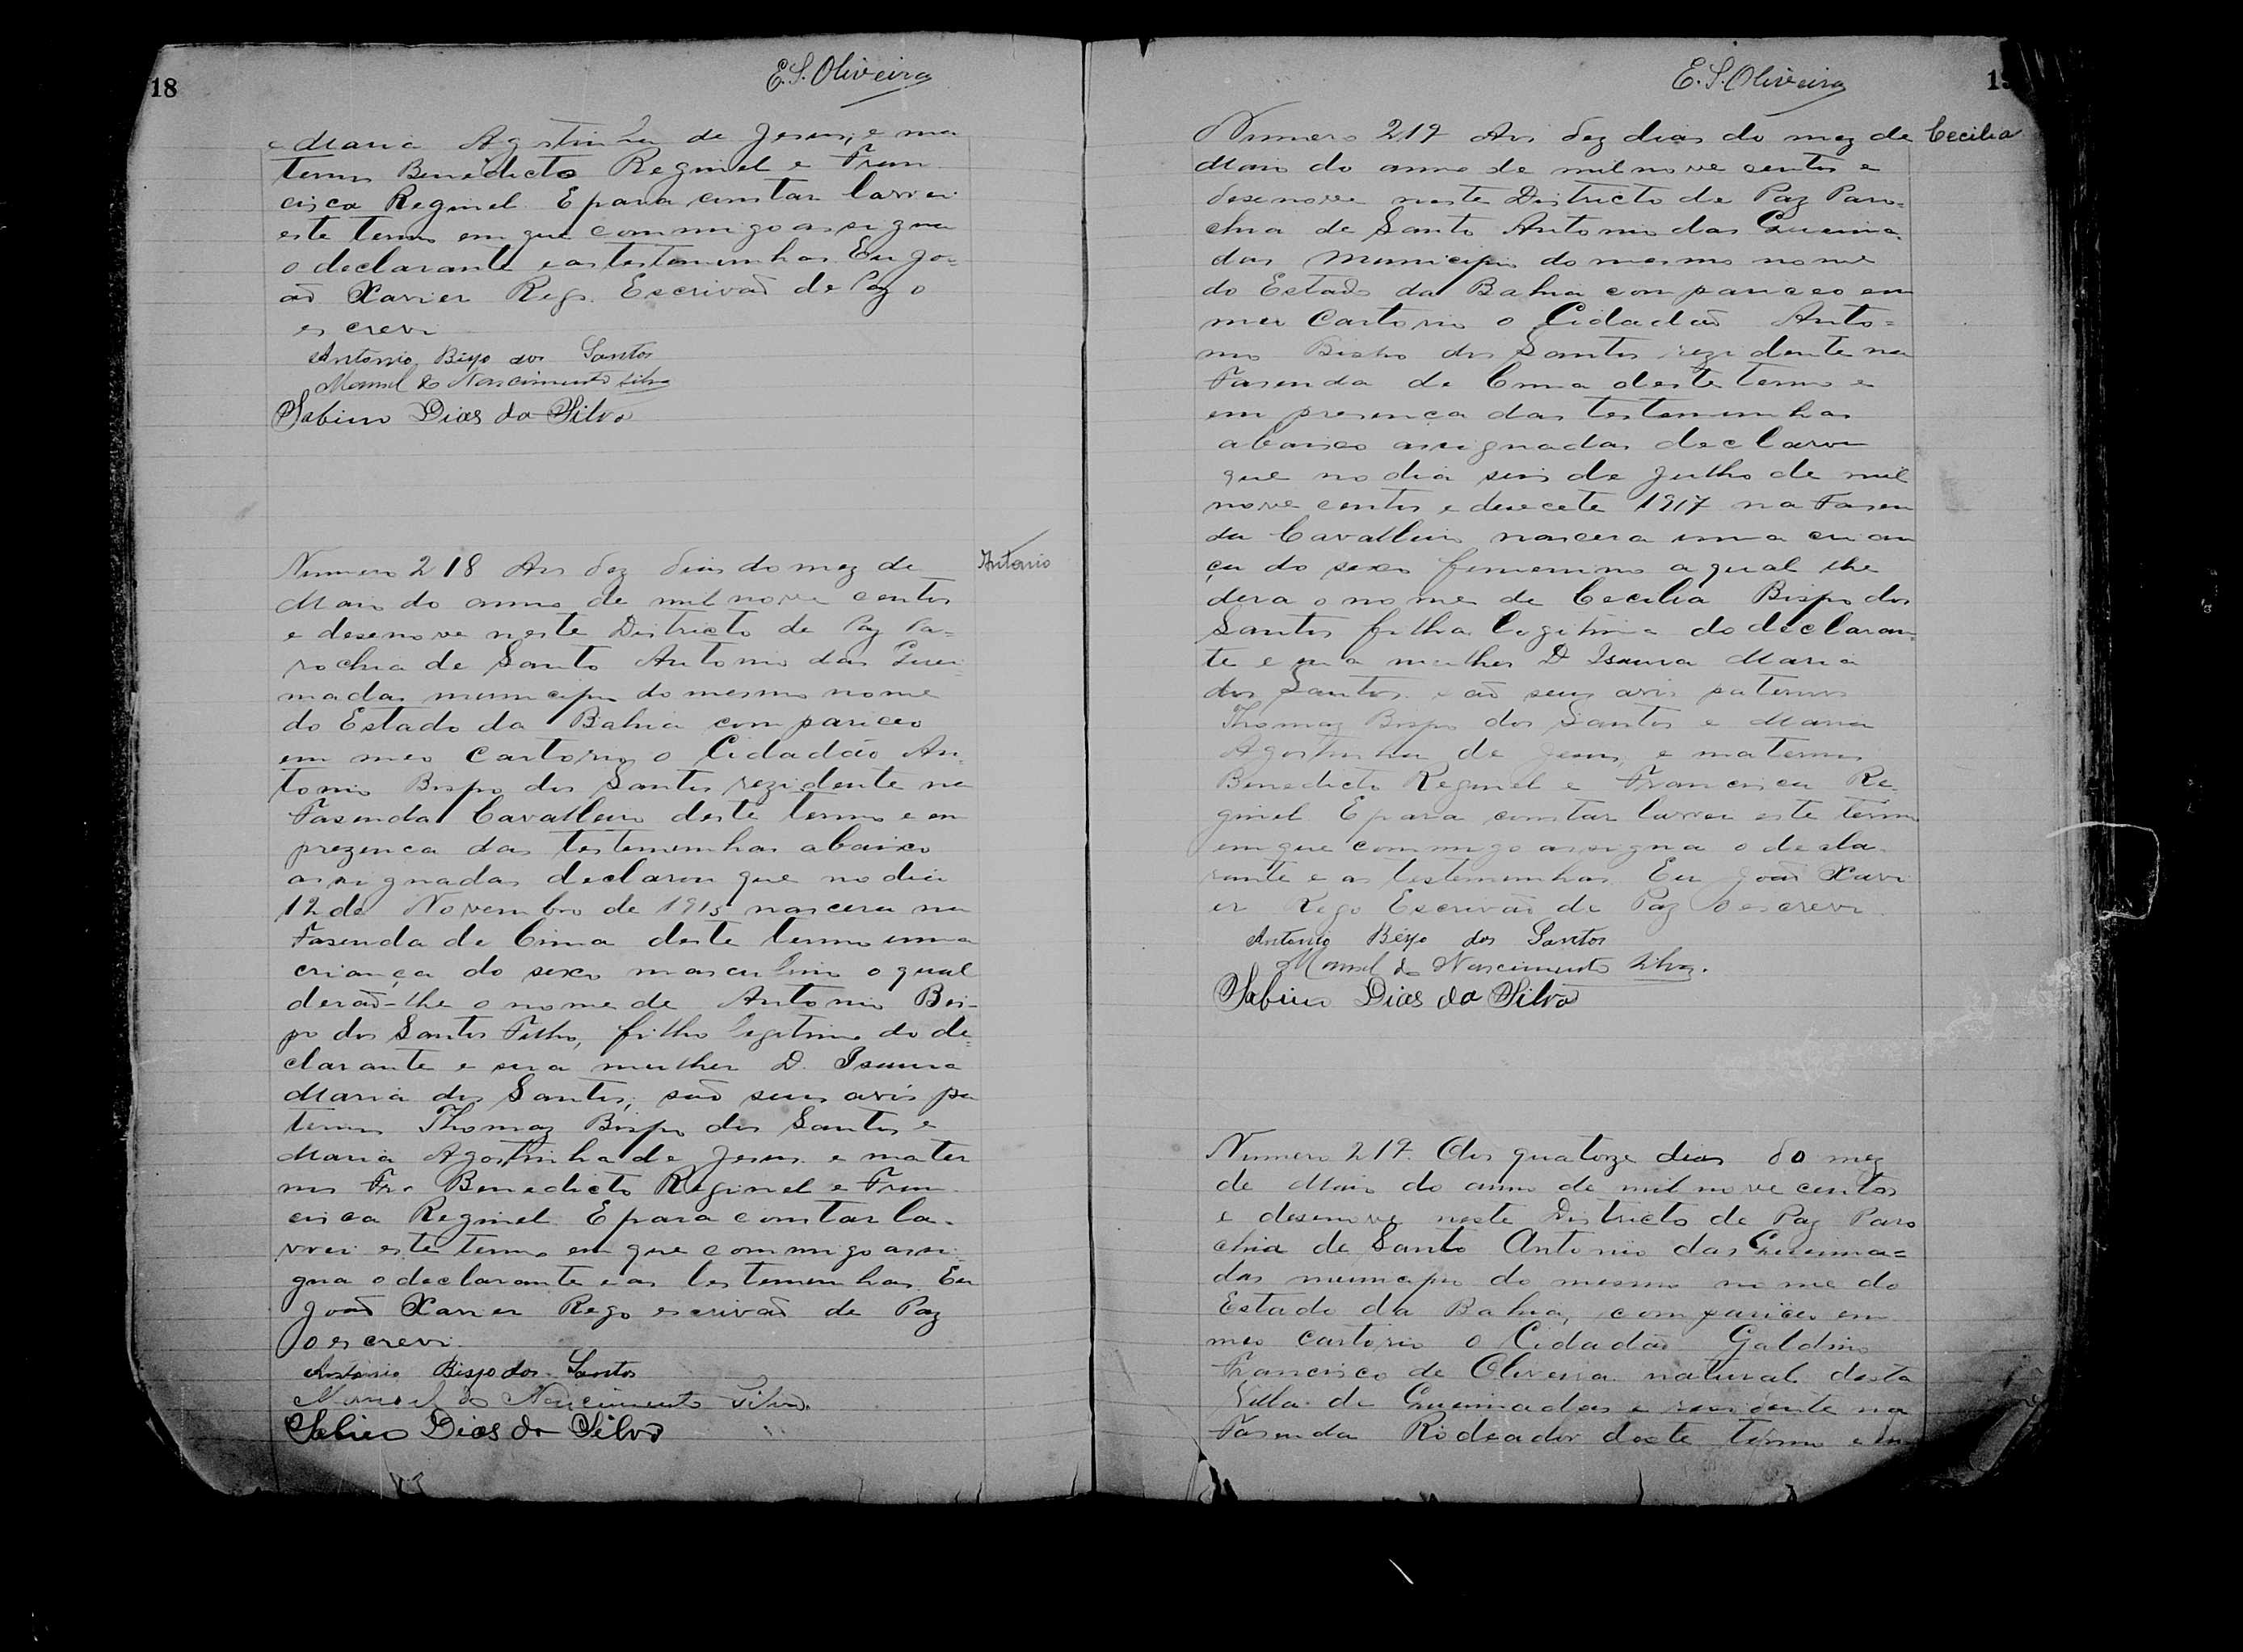 18
E.S. Oliveira
e Maria Agostinha de Jesus, e ma
ternos Benedicto Reginel e Fran
cisca Reginel E para constar lavrei
este termo em que commigo assigna
o declarante e as testemunhas Eu Jo=
aõ Xavier Rego Escrivaõ de Paz o
escrevi
Antonio Bispo dos Santos
Manoel do Nascimento Silva
Sabino Dias da Silva
Antonio
Numero 218 Aos dez dias do mez de
Maio do anno de mil nove centos
e desenove neste Districto de Paz Pa=
rochia de Santo Antonio das Quei
madas municipio do mesmo nome
do Estado da Bahia compariceo
em meo Cartorio o Cidadão An
tonio Bispo dos Santos rezidente na
Fasenda Cavalleiro deste termo e em
prezenca das testemunhas abaixo
assignadas declarou que no dia
12 de Novembro de 1915 nascera na
Fasenda de Cima deste termo uma
criança do sexo masculino o qual
deraõ-lhe o nome de Antonio Bis-
po dos Santos Filho, filho legitimo do de=
clarante e sua mulher D. Isaura
Maria dos Santos, saõ seus avós pa
ternos Thomaz Bispo dos Santos e
Maria Agostinha de Jesus e mater
nos Fra Benedicto Reginel e Fran
cisca Reginel E para constar la-
vrei este termo em que commigo assi
gna o declarante e as testemunhas Eu
Joaõ Xavier Rego escrivaõ de Paz
o escrevi.
Antonio Bispo dos Santos
Manoel do Nascimento Silva.
Sabino Dias da Silva
E.S. Oliveira
Cecilia
Numero 219 Aos dez dias do mez de
Maio do anno de mil nove centos e
desenove neste Districto de Paz Paro=
chia de Santo Antonio das Queima
das Municipio do mesmo nome
do Estado da Bahia compareceo em
meu Cartorio o Cidadaõ Anto=
nio Bispo dos Santos rezidente na
Fasenda de Cima deste termo e
em presença das testemunhas
abaixo assignadas declarou
que no dia seis de Julho de mil
nove centos e desecete 1917 na Fasen
da Cavalleiro nascera uma crian
ça do sexo femenino a qual lhe
dera o nome de Cecilia Bispo dos
Santos filha legitima do declaran
te e sua mulher D Isaura Maria
dos Santos saõ seus avós paternos
Thomaz Bispo dos Santos e Maria
Agostinha de Jesus, e maternos
Benedicto Reginel e Francisca Re-
ginel E para constar lavrei este termo
em que commigo assigna o decla-
rante e as testemunhas Eu Joaõ Xavi
er Rego Escrivaõ de Paz o escrevi
Antonio Bispo dos Santos
Manoel do Nascimento Silva.
Sabino Dias da Silva
Numero 219. Aos quatorze dias do mez
de Maio do anno de mil nove centos
e desenove neste Districto de Paz Paro
chia de Santo Antonio das Queima=
das municipio do mesmo nome do
Estado da Bahia, compariceu em
meo cartorio o Cidadaõ Galdino
Francisco de Oliveira natural desta
Villa de Queimadas e residente na
Fasenda Rodeador deste termo e em